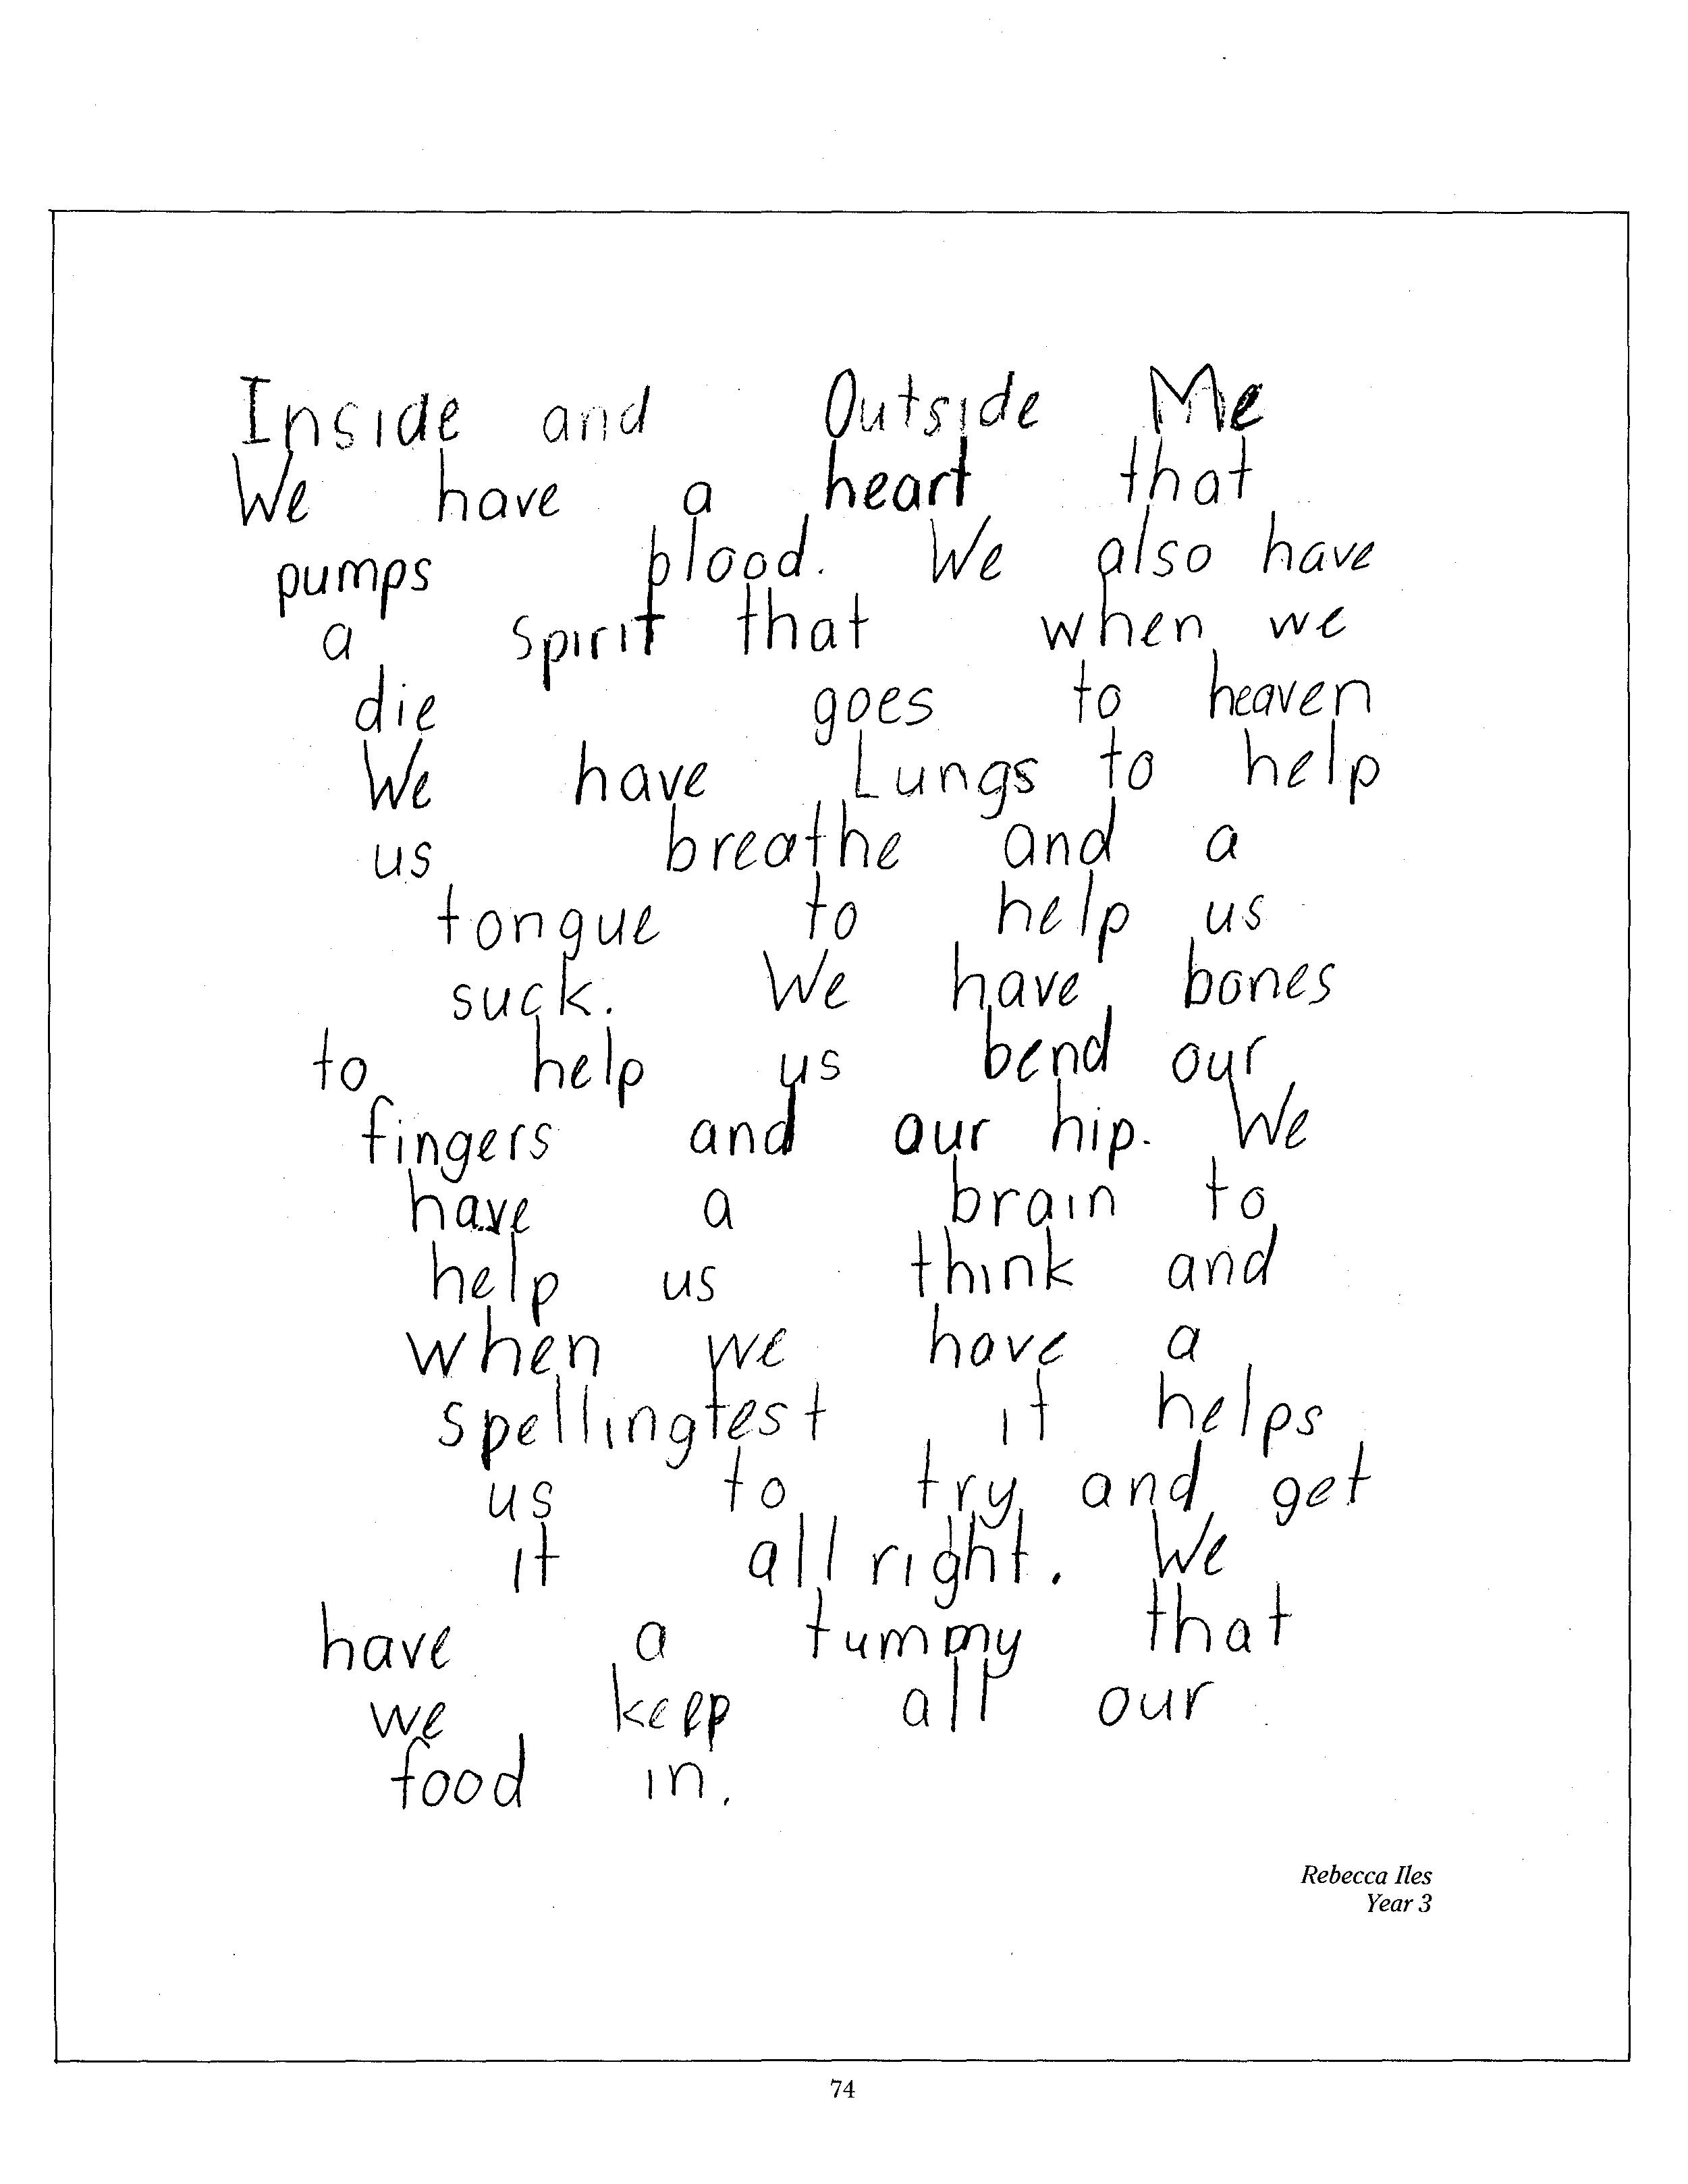 Inside and Outside Me
We have a heart that
pumps blood. We also have
a spirit that when we
die goes to heaven
We have Lungs to help
us breathe and a
tongue to help us
suck. We have bones
to help us bend our
fingers and our hip. We
have a brain to
help us think and
when we have a
spellingtest it helps
us to try and get
it all right. We
have a tummy that
we keep all our
food in.
Rebecca Iles
Year 3
74